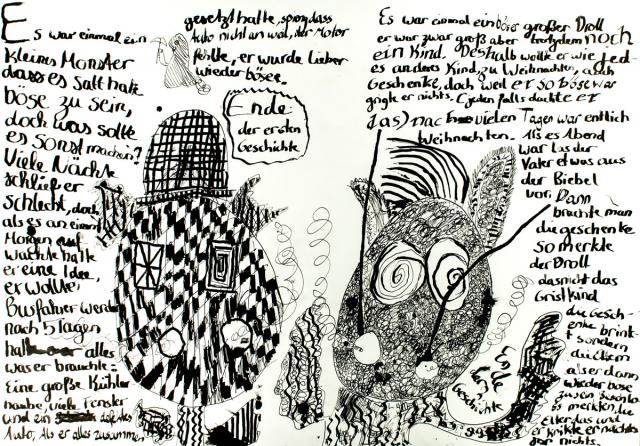 Es war einmal ein
kleines Monster
dass es satt hatte
böse zu sein,
doch was sollte
es sonst machen?
Viele Nächte
schlief er
schlecht, doch
als es an einem
Morgen auf
wachte hatte
er eine Idee,
er wollte
Busfahrer werden
nach 5 Tagen
hatte alles
was er brauchte:
Eine große Kühler
haube, viele Fenster
und ein
Auto, Als er alles zusammen
gesetzt hatte, sprang dass
Auto nicht an weil, der Motor
fehlte, er wurde lieber
wieder böse.
Ende
der ersten
Geschichte
Es war einmal ein böser großer Droll
er war zwar groß aber trotzdem noch
ein Kind. Deshalb wollte er wie jed-
es anderes Kind, zu Weihnachten, auch
Geschenke, doch weil er so böse war
grigte er nichts. (jeden falls dachte er
das) nac vielen Tagen war entlich
Weihnachten. Als es Abend
war las der
Vater etwas aus
der Biebel
vor. Dann
brachte man
die geschenke
so merkte
der Droll
das nicht das
Gristkind
die Gesch-
enke brink-
t sondern
die Eltern
als er dann
wieder böse
zu sein
es merkten die
Elter das und
er krikte er nächstes
Jahr nichts.
Ende
Geschichte